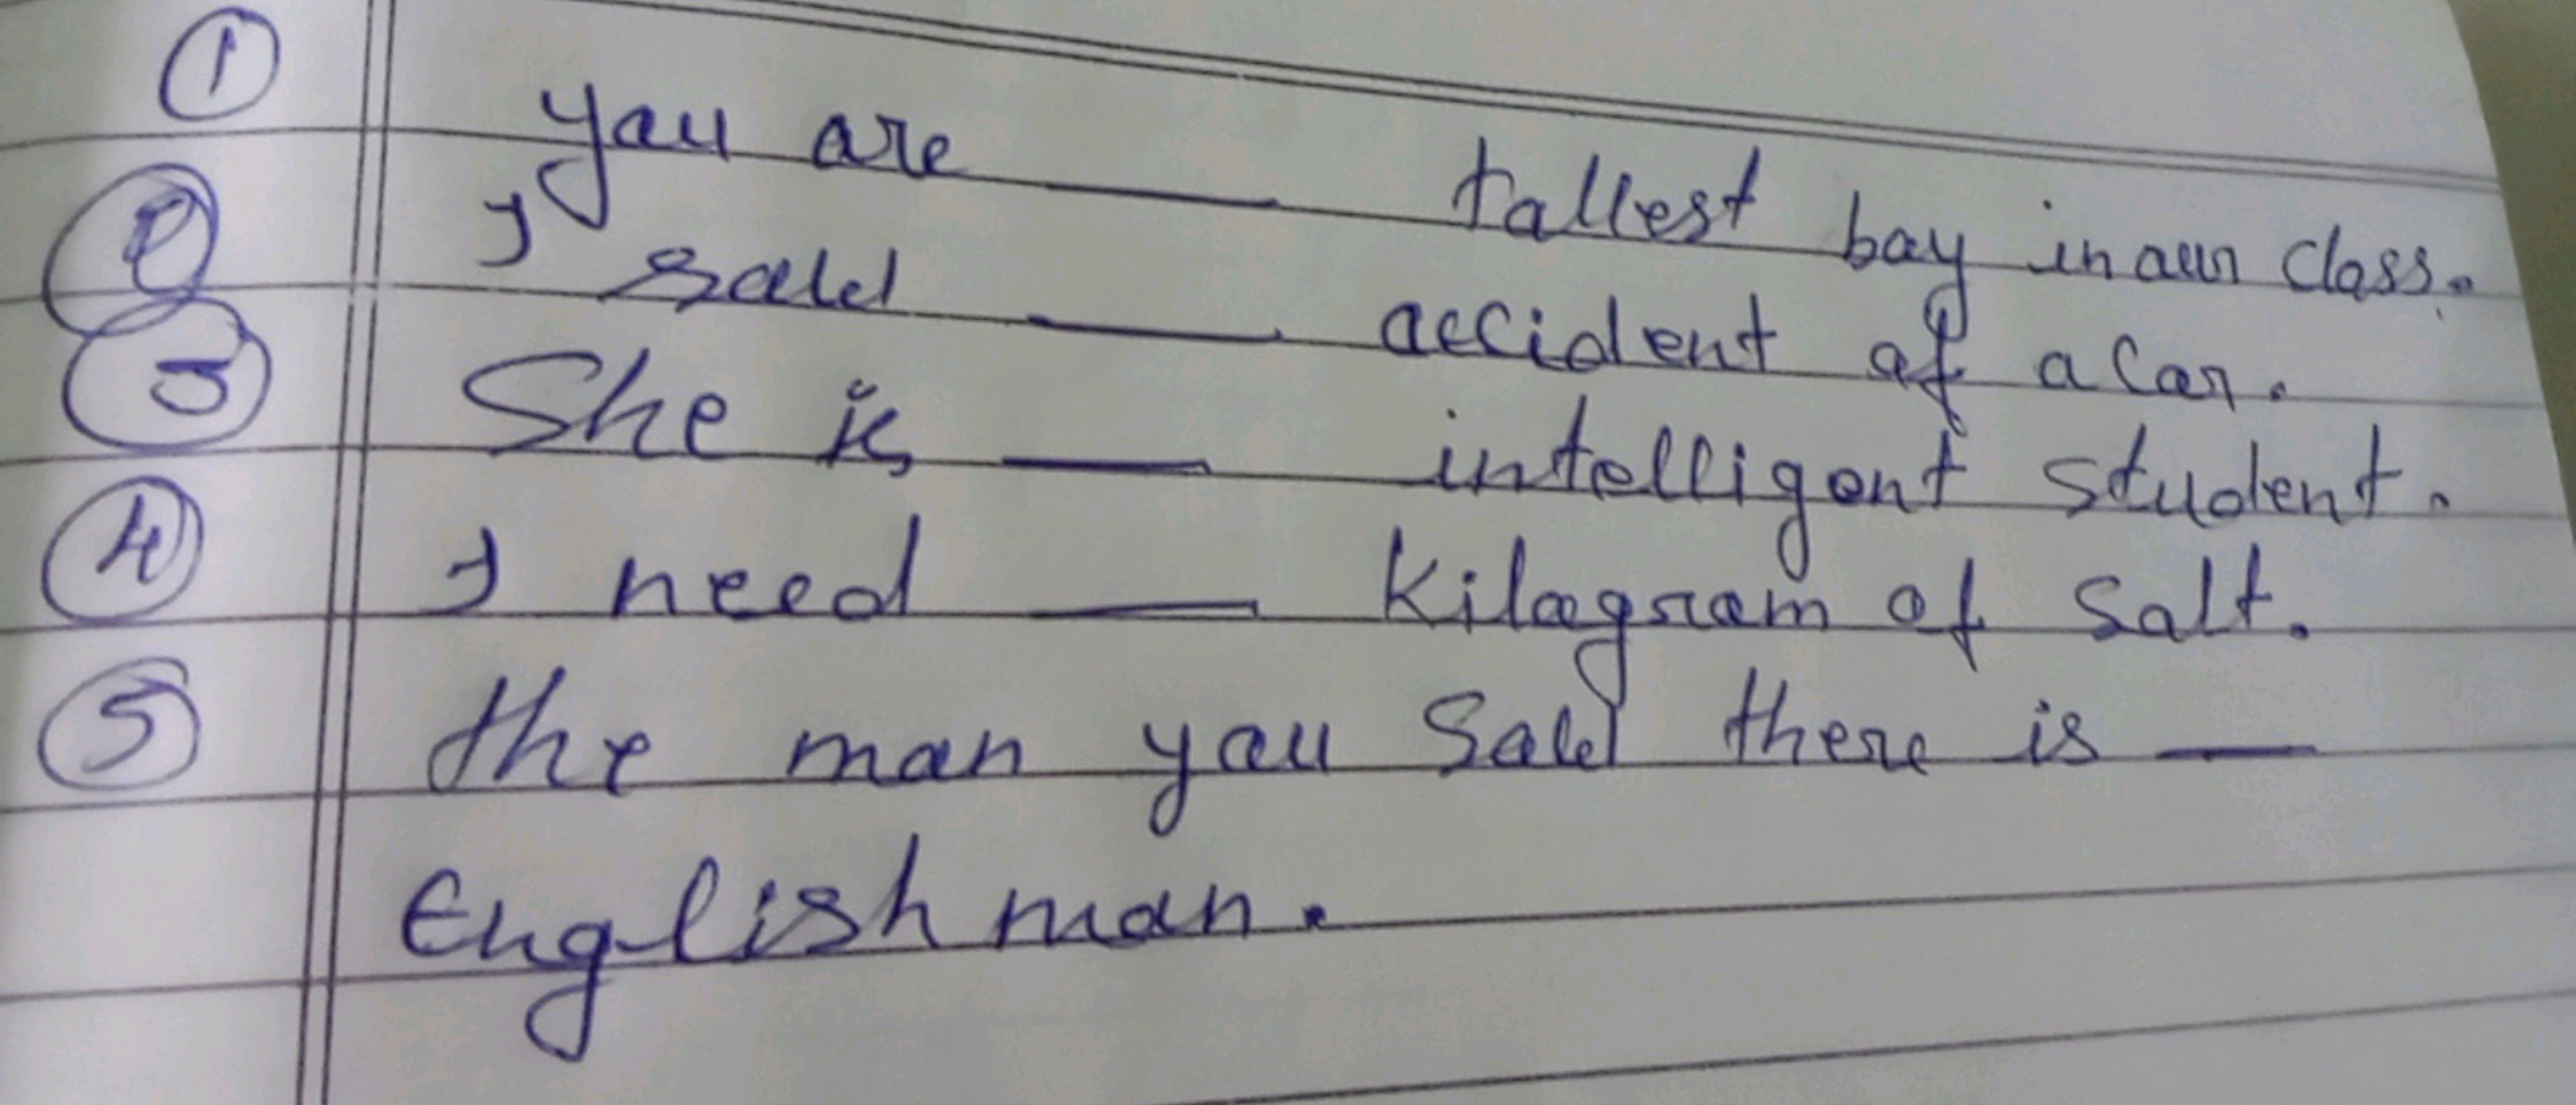 ① you are ___ tallest boy in our class.
② I saw ___ accident of a car.
③ She is ___ intelligent student.
④ I need ___ kilogram of salt.
⑤ the man you saw there is ___
English man.